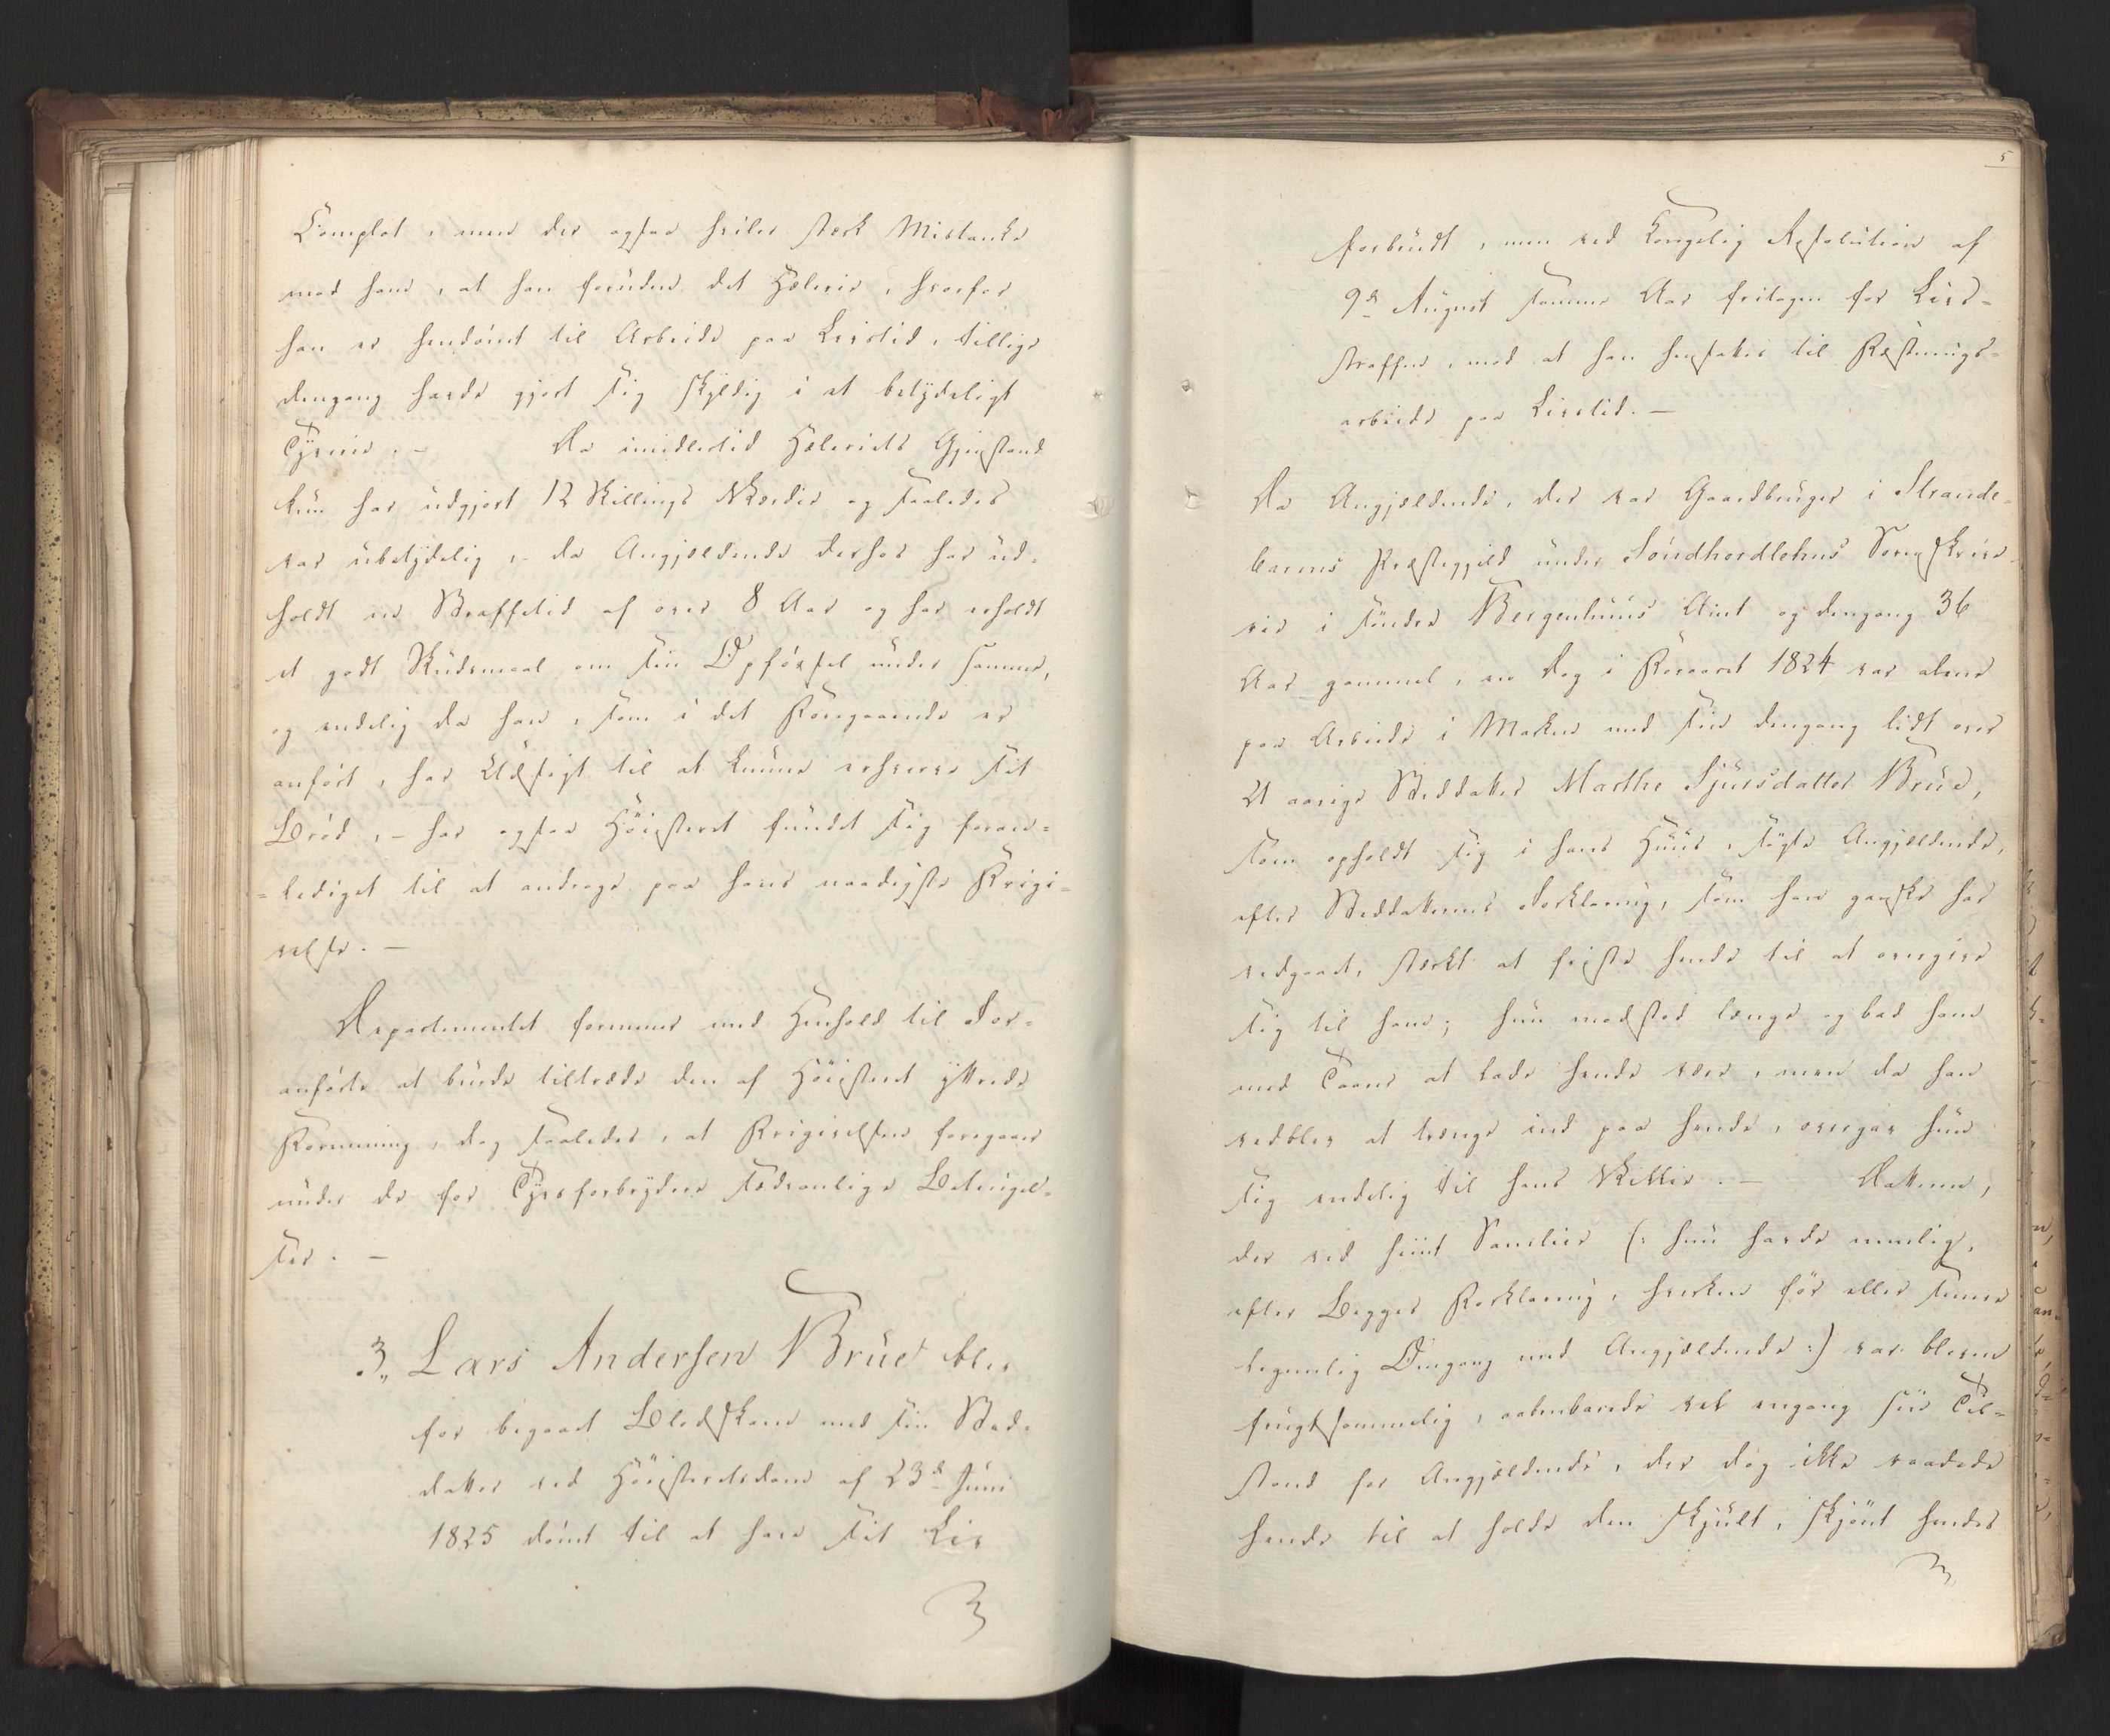 Complot, men der ogsaa hviler stærk Mistanke
mod ham, at han foruden det Hæleri, hvorfor
han er hendømt til Arbeide paa Livstid, tillige
dengang havde gjort sig skyldig i et betydeligt
Tyverie. – Da imidlertid Hæleriets Gjenstand
kun har udgjort 12 Skillings Værdie og saaledes
var ubetydelig, – da Angjældende derhos har ud-
holdt en Straffetid af over 8 Aar og har erholdt
et godt Skudsmaal om sin Opførsel under samme,
og endelig da han, som i det Foregaaende er
anført, har Udsigt til at kunne erhverve sit
Brød, – har ogsaa Höiesteret fundet sig foran-
=lediget til at andrage paa hans naadigste Frigi-
velse. –
Departementet formener med Henhold til For-
anförte at burde tiltræde den af Höiesteret yttrede
Formening, dog saaledes, at Frigivelsen foregaaer
under de for Tyvsforbrydere sædvanlige Betingel-
ser. –
3., Lars Andersen Brüe blev
for begaaet Blodskam med sin Sted-
datter ved Höiesteretsdom af 23d Juni
1825 dömt til at have sit Liv
5
forbrudt, men ved Kongelig Resolution af
9d August samme Aar fritagen for Livs-
straffen, mod at han hensattes til Fæstnings-
arbeide paa Livstid. –
Da Angjældende, der var Gaardbruger i Strande-
barms Præstegjeld under Söndhordlehns Sorenskrive-
rie i söndre Bergenhuus Amt og dengang 36
Aar gammel, en Dag i Foraaret 1824 var alene
paa Arbeide i Marken med sin dengang lidt over
21 aarige Steddatter Marthe Sjursdatter Brüe,
som opholdt sig i hans Huus, søgte Angjældende,
efter Steddatterens Forklaring, som han ganske har
vedgaaet, stærkt at friste hende til at overgive
sig til ham; hun modstod længe og bad ham
med Taare at lade hende være, men da han
vedblev at trænge ind paa hende, overgav hun
sig endelig til hans Villie. – Datteren,
der ved hiint Samleie (: hun havde nemlig,
efter Begges Forklaring, hverken för eller senere
legemlig Omgang med Angjældende :) var bleven
frugtsommelig, aabenbarede vel engang sin Til-
stand for Angjældende, der dog ikke raadede
hende til at holde den skjult, skjönt hendes